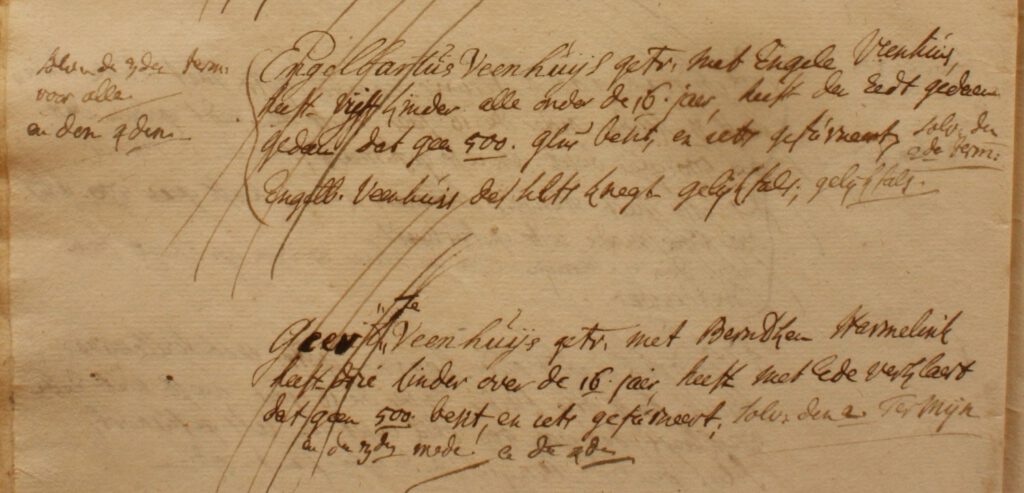 solv. de 3den term:
voor alle
en den 4den
Engelbartus Veenhuijs getr. met Engele Veenhuis,
heeft vijff kinder alle onder de 16. jaer, heeft den Eedt gedaen
gedaen dat geen 500. gls besit, en iets gefurneert, solv. den
2de term:
Engelb. Veenhuis des selfs knegh gelijkfals, gelijkfals.
Geert Veenhuijs getr. met Berndken Harmelink
heeft drie kinder over de 16. jaer heeft met Ede verklaert
dat geen 500. besit, en iets gefurneert, solv: den 2. Termijn
en den 3den mede en de 4den